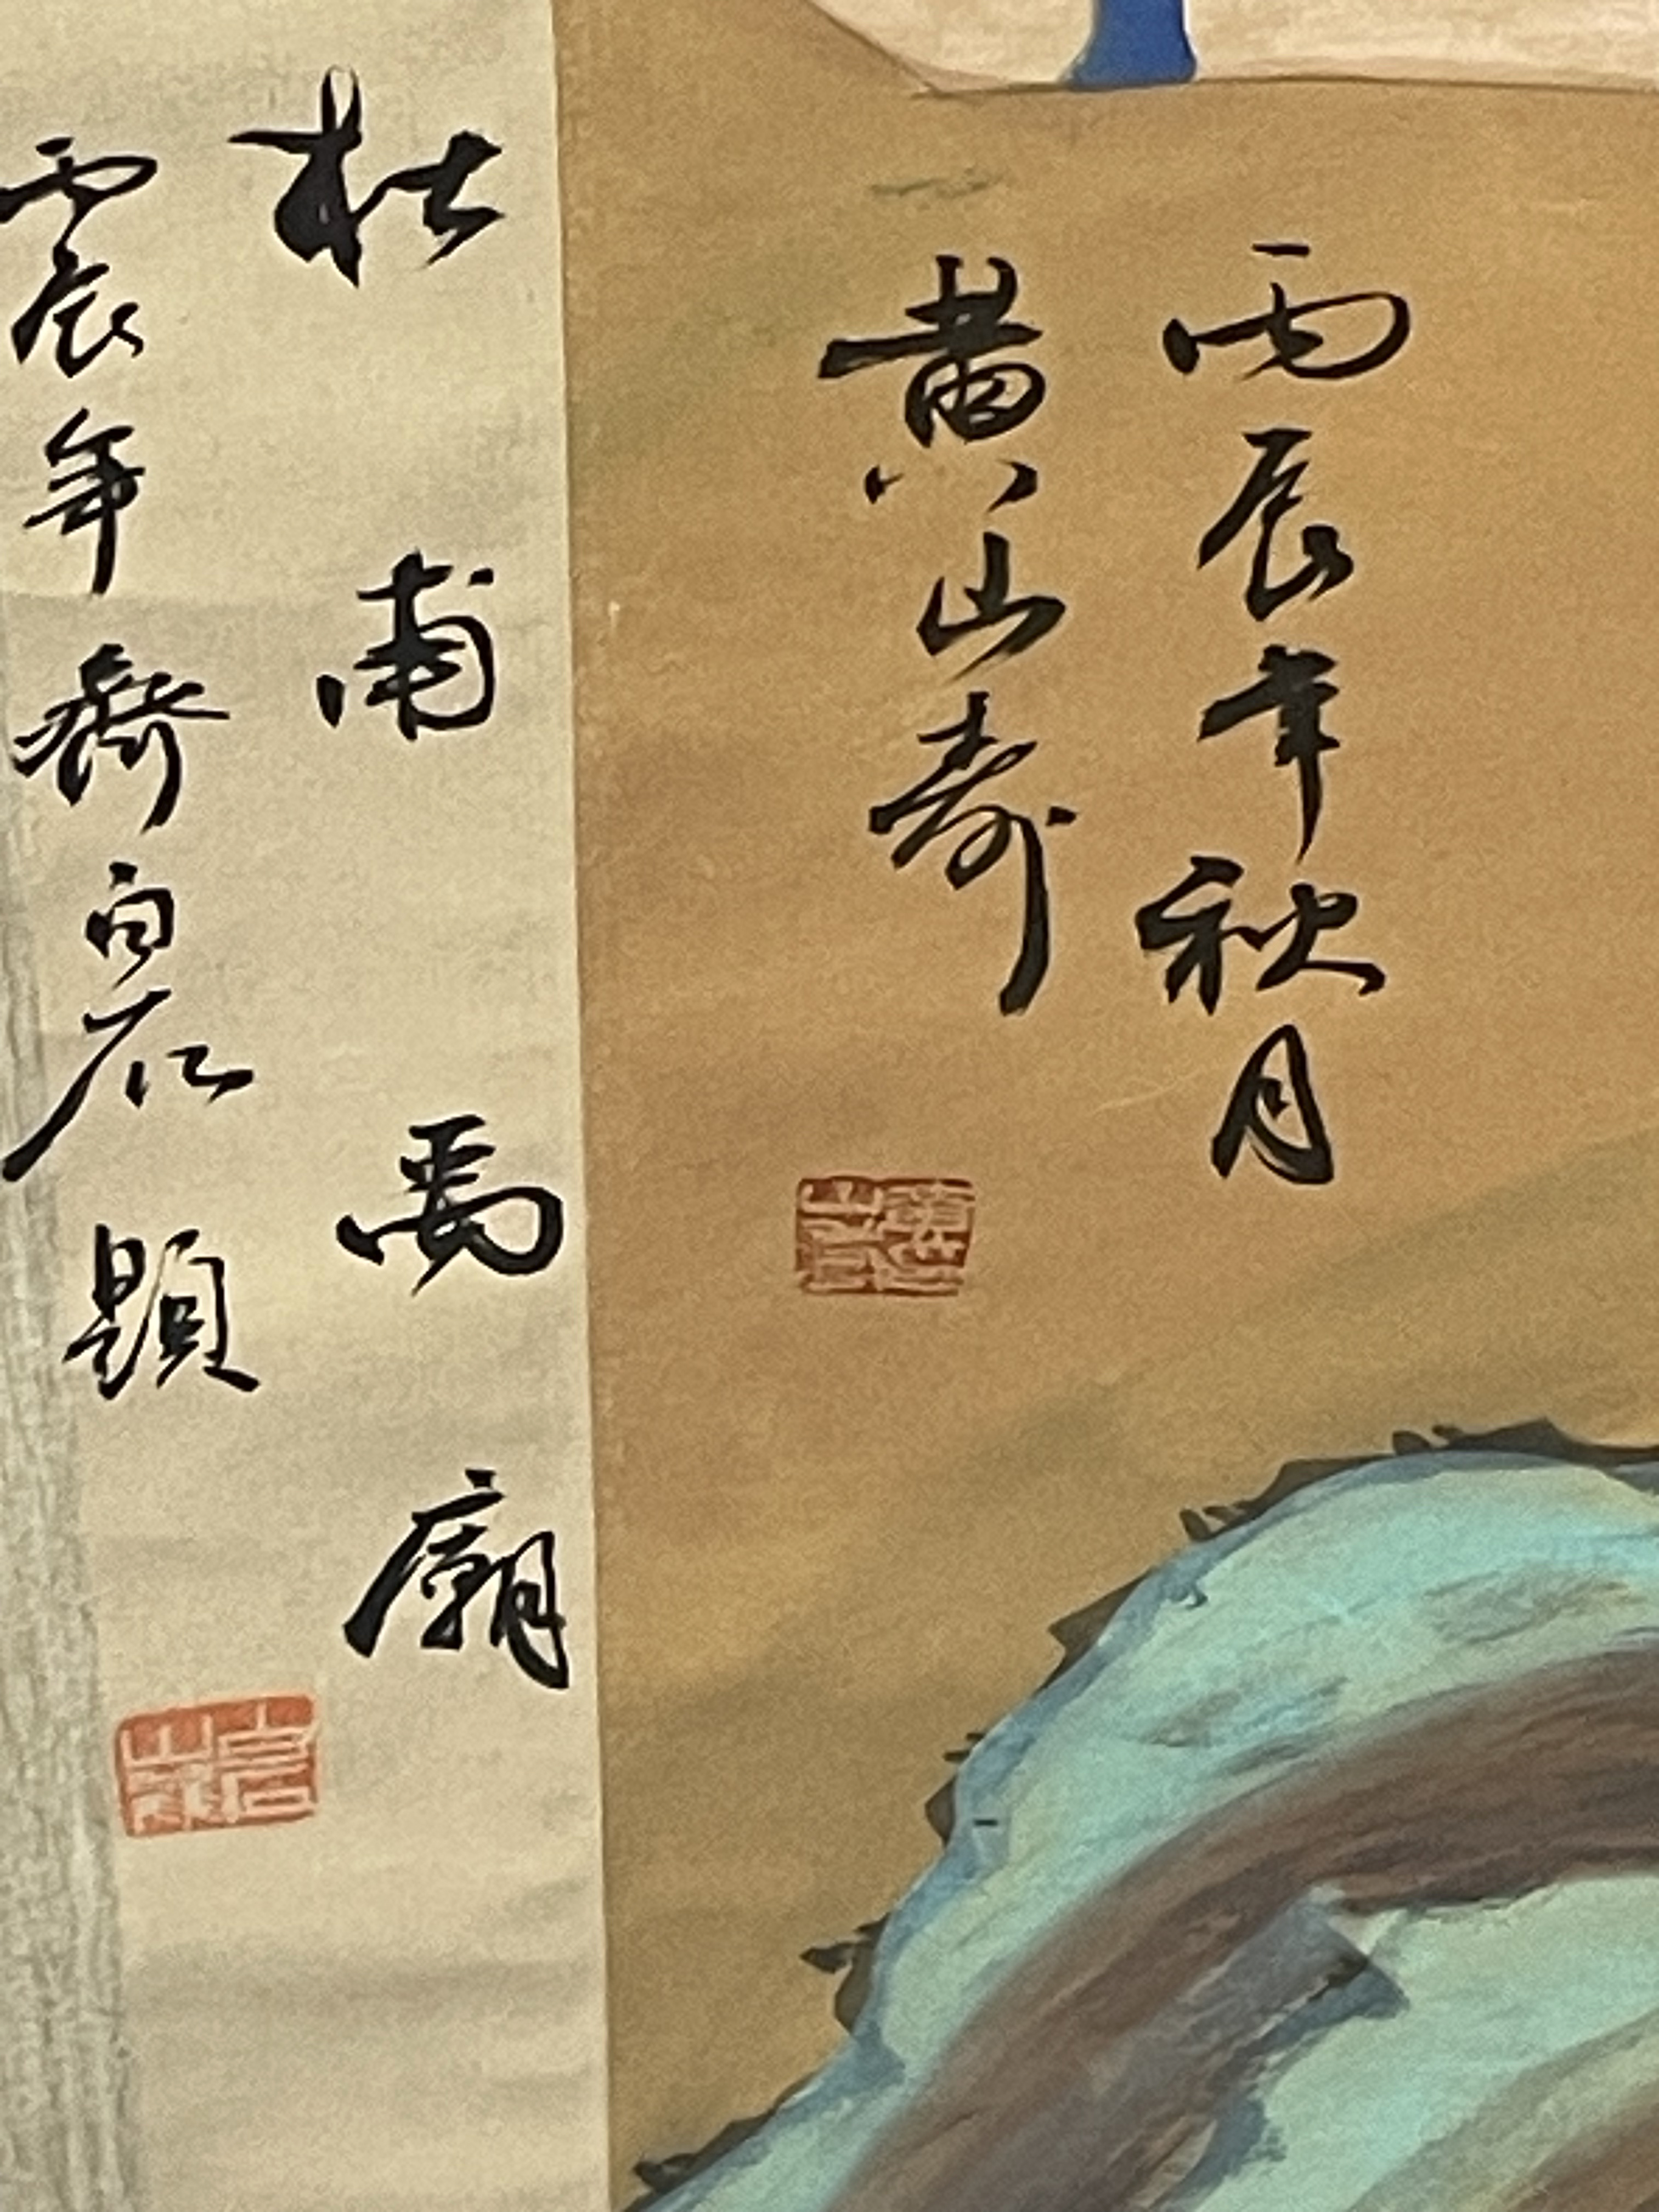 丙辰年秋月
黄山壽
杜甫禹廟
丙辰年齊白石題